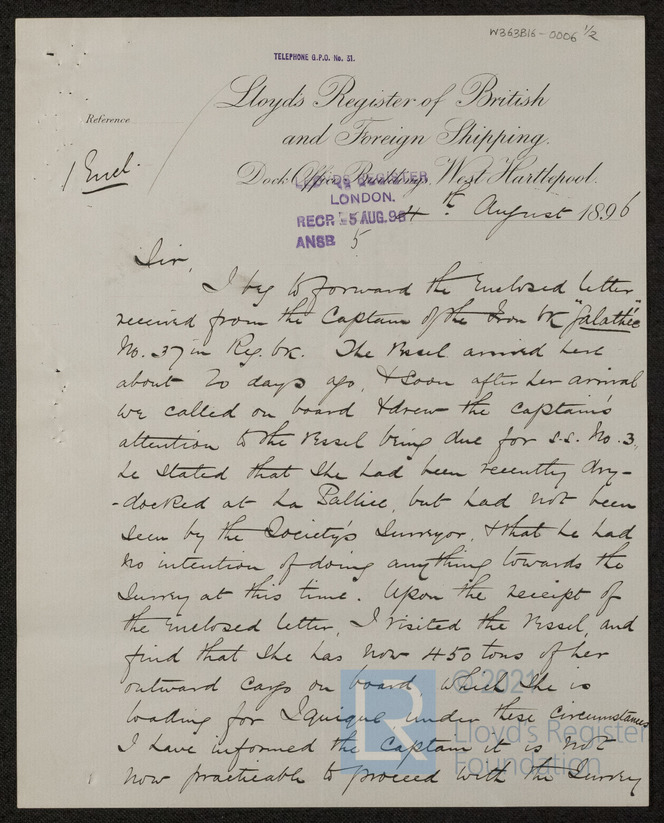 W363B16-0006 1/2
TELEPHONE G.P.O. No. 31.
Lloyd's Register of British
and Foreign Shipping.
Reference
1 Encl.
Dock Office Buildings, West Hartlepool.
LLOYD'S REGISTER
LONDON.
4th August 1896
RECR 5 AUG. 96
ANSB 5
Sir,
I beg to forward the Enclosed letter
received from the Captain of the Iron bk "Galathée"
No. 37 in Reg. bk. The Vessel arrived here
about 20 days ago, & soon after her arrival
we called on board & drew the captain's
attention to the Vessel being due for s.s. No. 3,
he stated that she had been recently dry-
-docked at La Pallice, but had not been
seen by the Society's Surveyor, & that he had
no intention of doing anything towards the
Survey at this time. Upon the receipt of
the Enclosed letter, I visited the Vessel, and
find that she has now 450 tons of her
outward cargo on board, which she is
loading for Iquique, under these circumstances
I have informed the Captain it is not
now practicable to proceed with the Survey
© 2021
Lloyd's Register
Foundation
LR